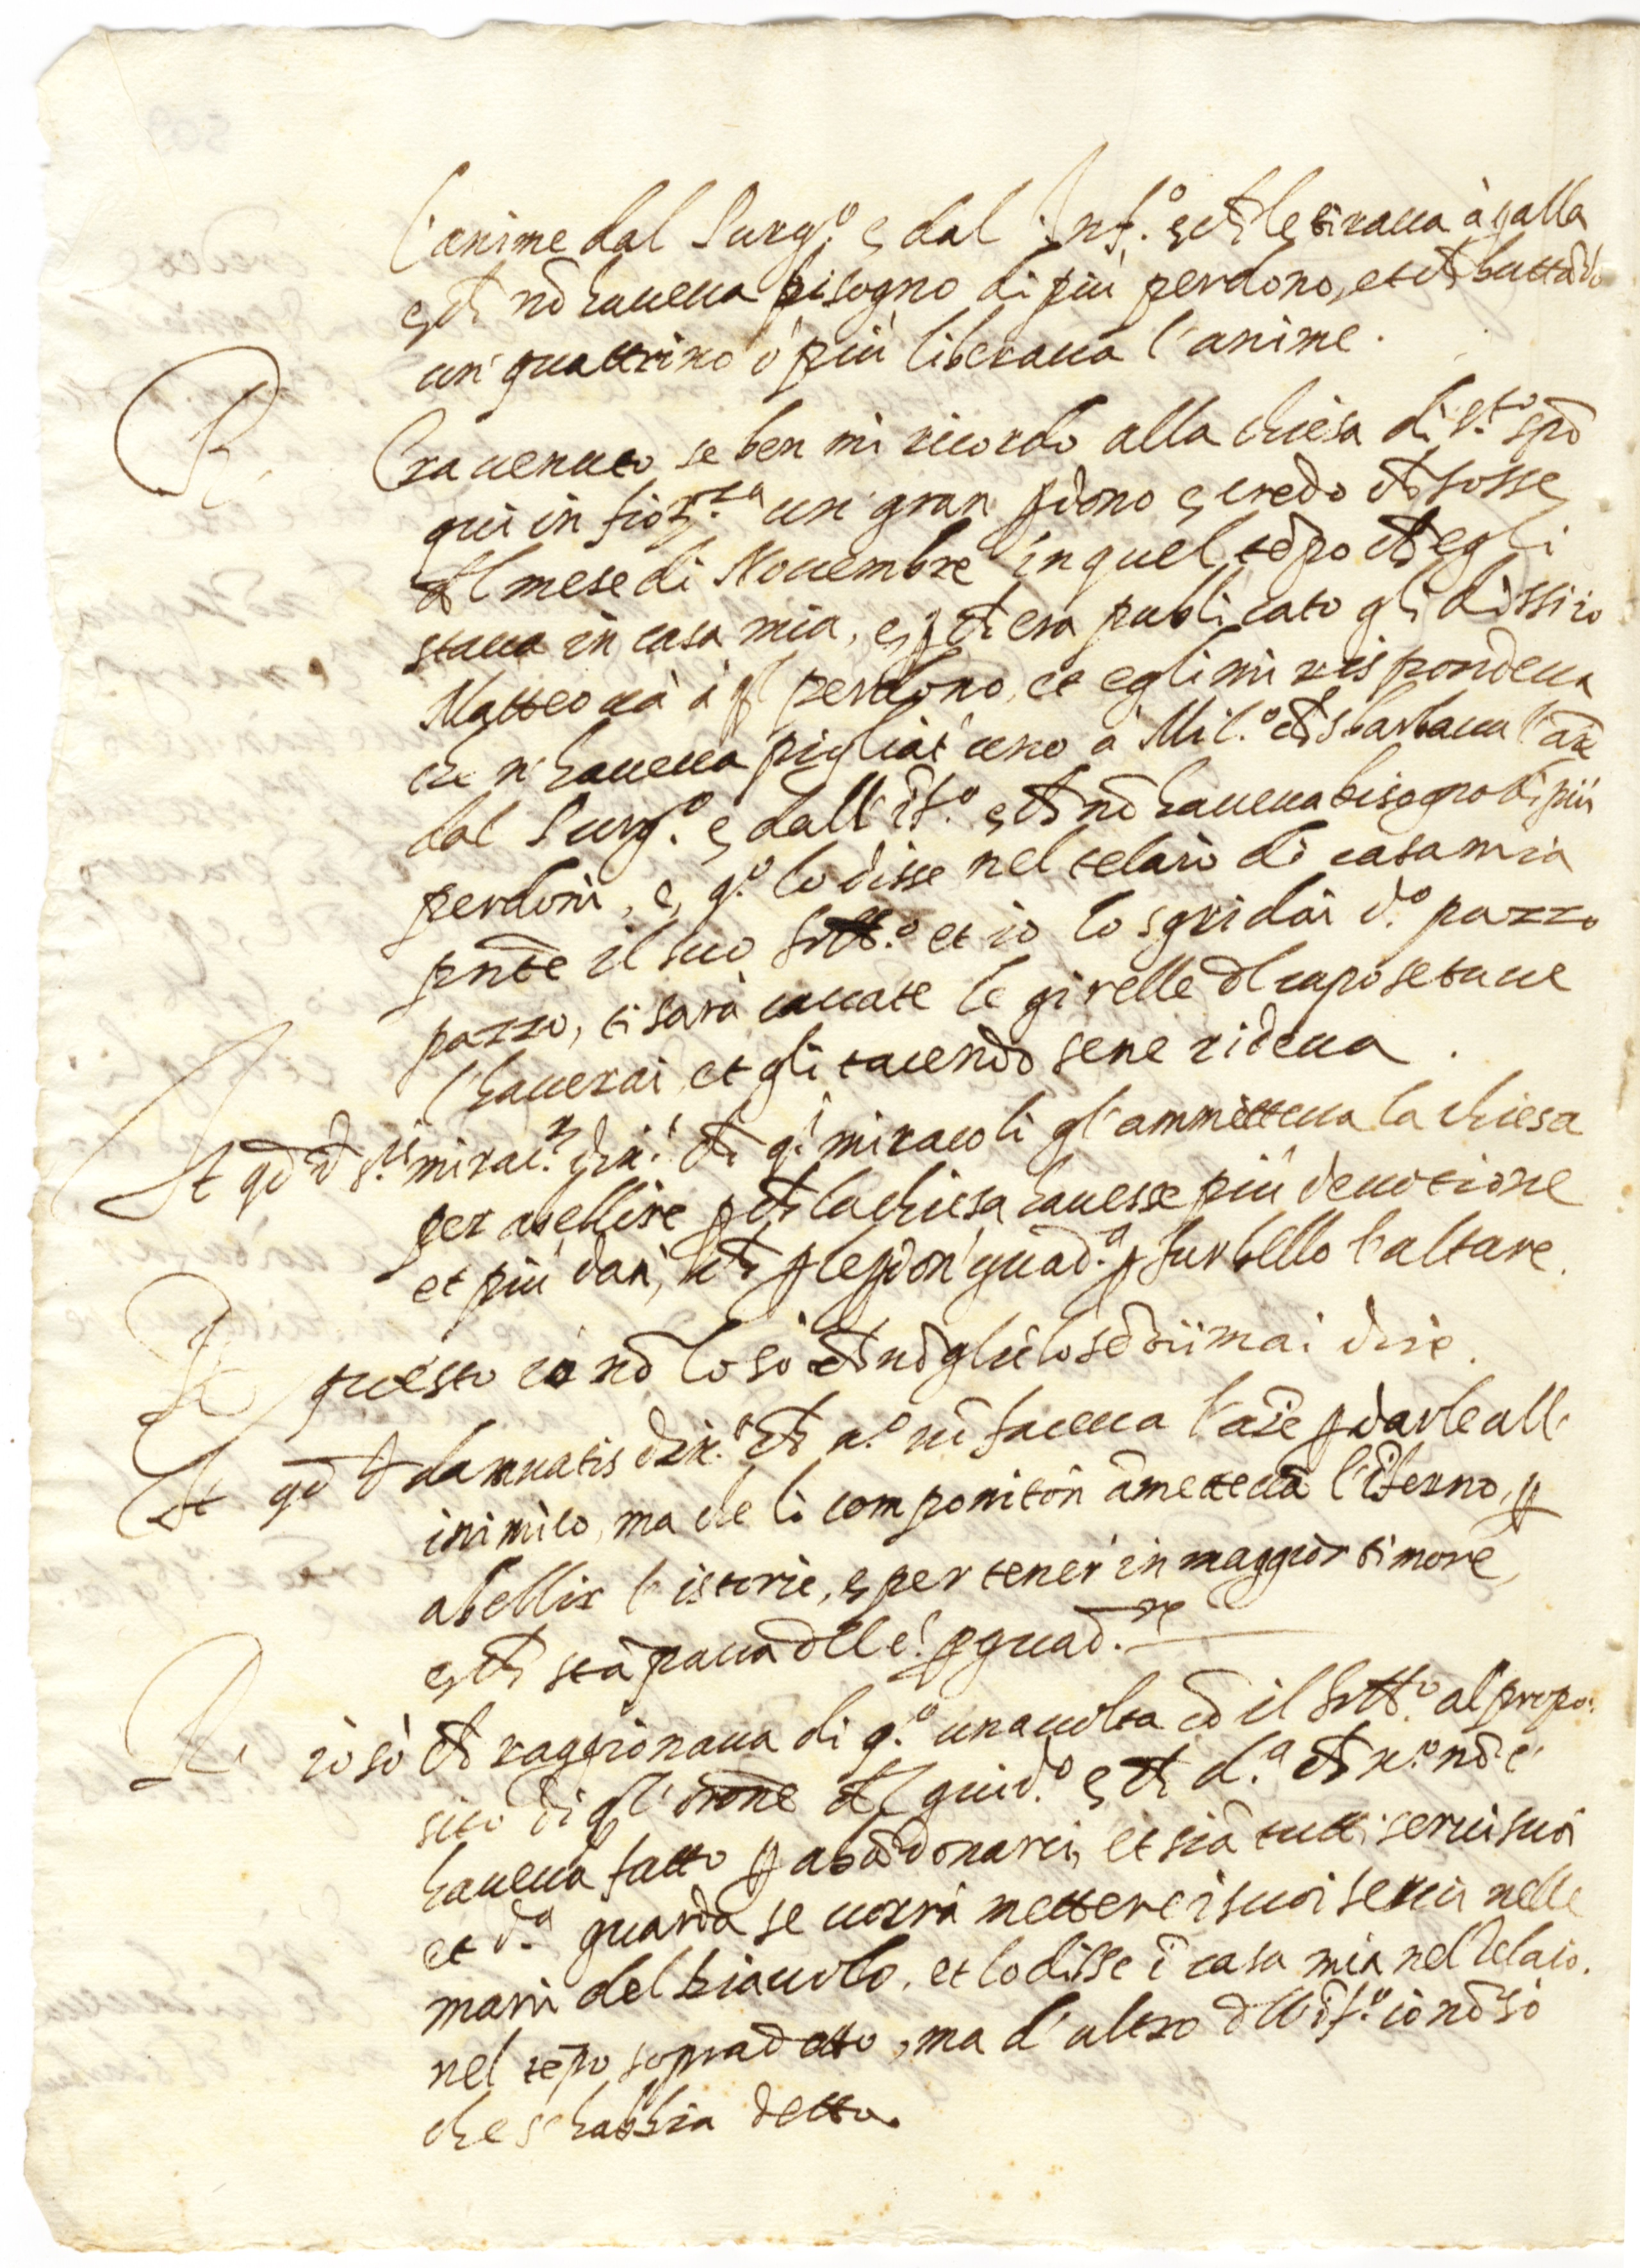 l'anime dal Purg.º e dal Inf.º e ch le tiraua à galla
e ch nō haueua bisogno di più perdono, et ch buttādo
un' quattrino ò più liberaua l'anime.
R. Era uenuto se ben mi ricordo alla chiesa di s.to spō
qui in fior.za un' gran pdono e credo ch fosse
dl mese di Nouembre in quel tēpo ch egli
staua in casa mia, e p ch era publicato gli dissi io
Matteo uà à ql perdono, et egli mi rispondeua
che n' haueua pigliat' uno à Mil.º ch sbarbaua l'aīe
dal Purg.º e dall' īf.º e ch nō haueua bisogno di più
perdoni, e q.º lo disse nel telaio di casa mia
pnte il suo fratt.º et io lo sgridai d.º pazzo
pazzo, ti sarà cauate le girelle dl capo se tu ue
l'hauerai, et gli tacendo se ne rideua.
It qd d s.tis mirac.s dix.t ch q.i miracoli gl'ammetteua la chiesa
per abellire p ch la chiesa hauesse più deuotione
et più dan', ch p le pdon' guad.a p far bello l'altare.
R questo io nō lo sò ch nō gliē lo sētii mai dire.
It qd d damnatis dix.t ch n.º nō faceua l'aīe p darle all'
inimico, ma che li componitori āmetteuā l'īferno, p
abellir l'istorie, e per tener' in maggior timore,
e ch stāpaua dlle p guad.re
R. io sò ch raggionaua di q.º una uolta cō il fratt.º al propo-
sito di ql' orōne dl guid.º e ch d.a ch n.º nō ci
haueua fatto p abādonarci, et siā tutti serui suoi
et d.a guarda se uorrà mettere i suoi serui nelle
mani del diauolo, et lo disse ī casa mia nel telaio.
nel tēpo sopradetto, ma d'altro dll'īf.º io nō sò
che s'habbia detto.